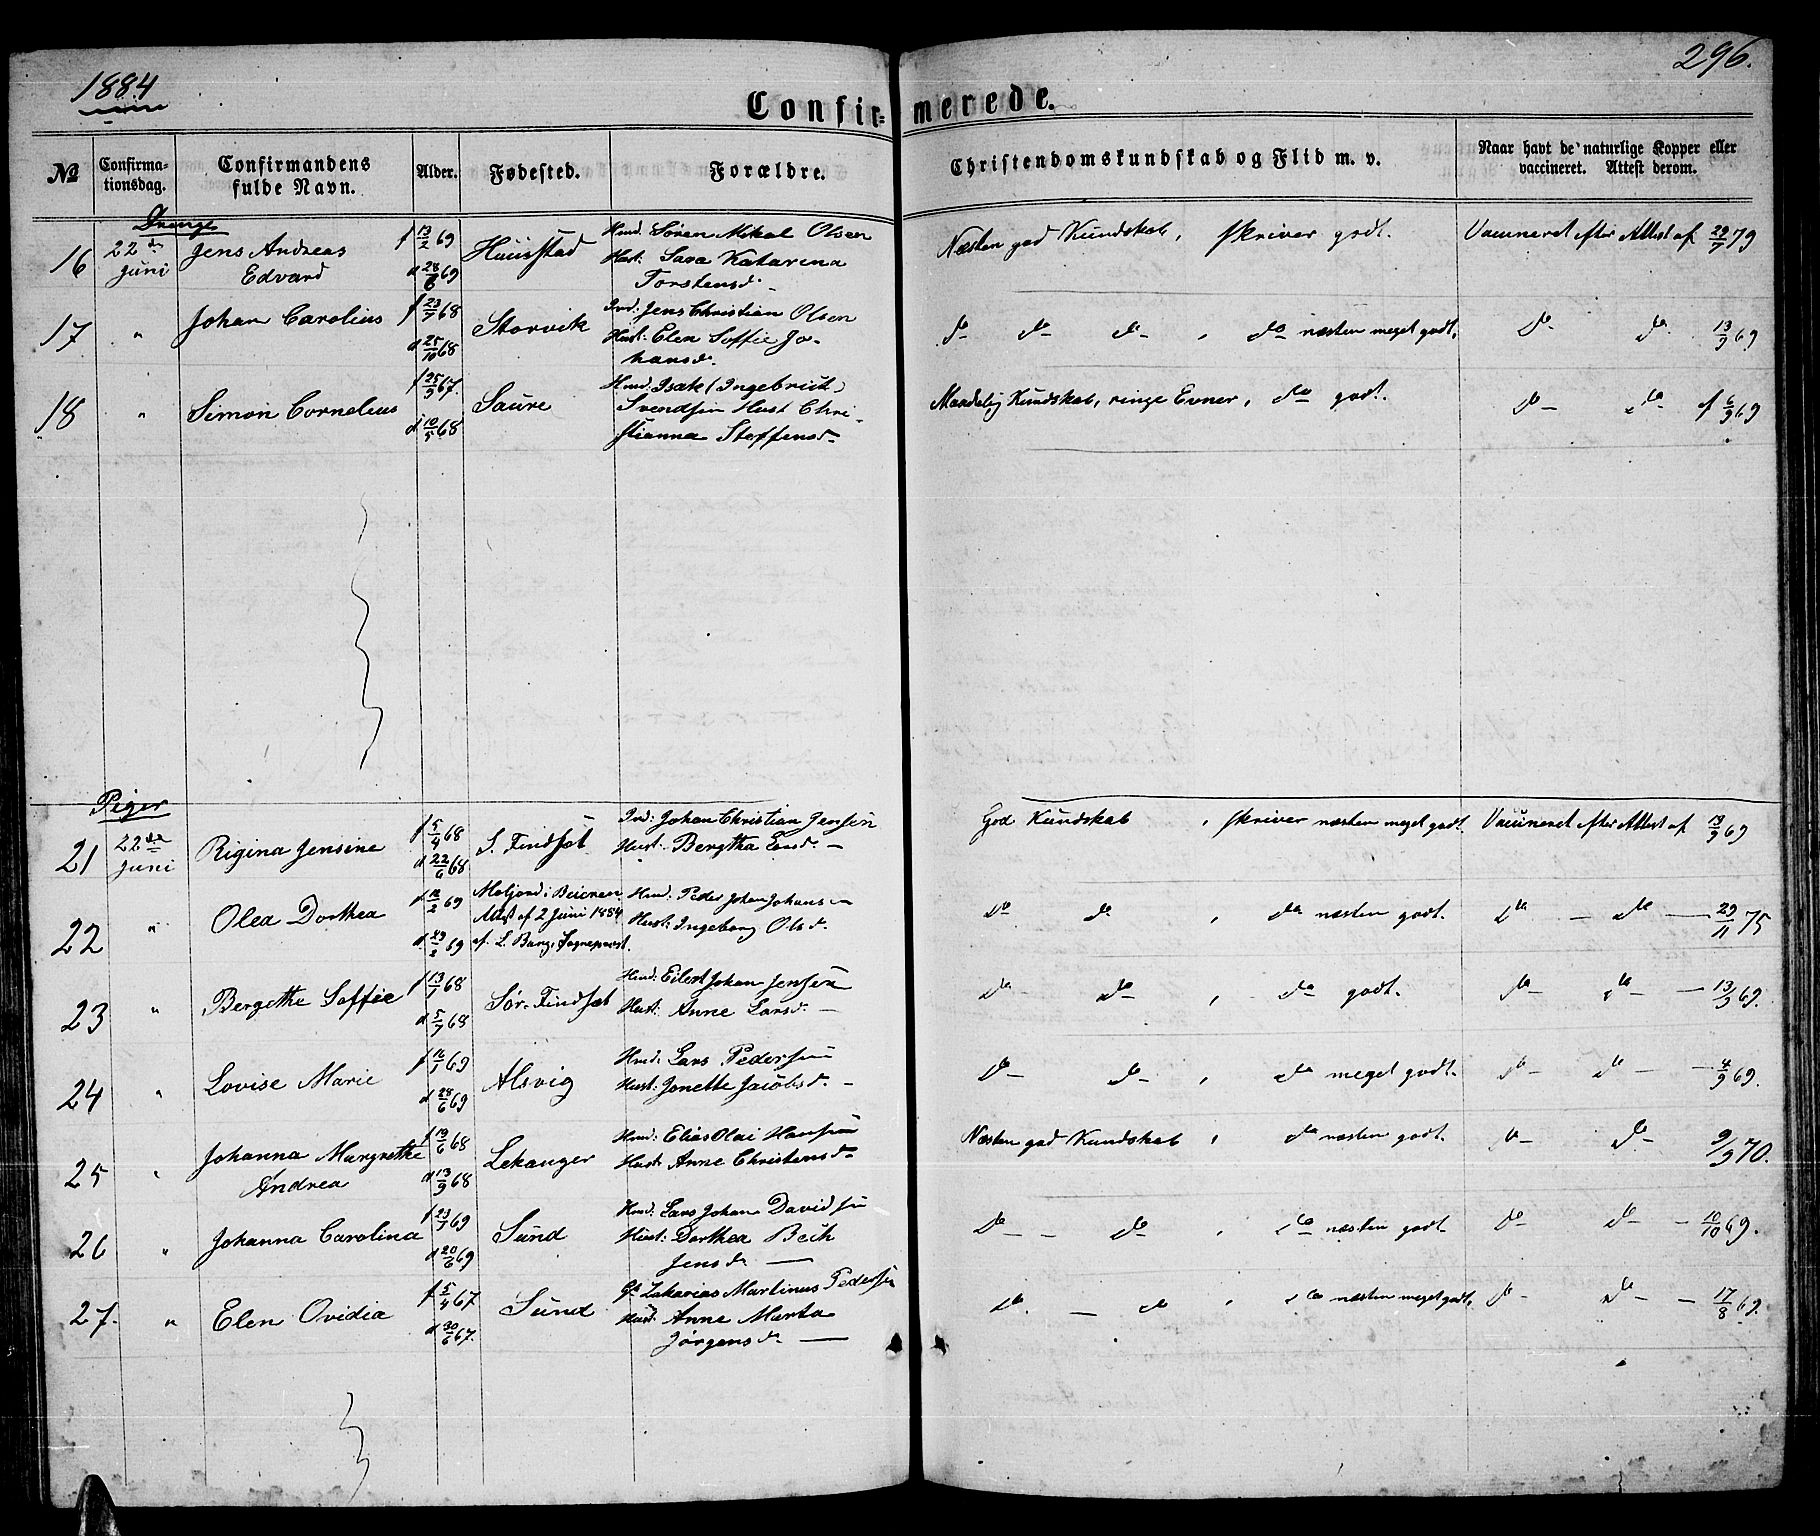 1884
296.
Confirmerede.
No
Confirmationsdag.
Confirmandens fulde Navn.
Alder.
Fødested.
Forældre.
Christendomskundskab og Flid m. v.
Naar havt de naturlige Kopper eller vaccineret. Attest derom.
Drenge
16 22de Juni Jens Andreas Edvard f 13/2 69 d 28/6 69 Huusstad Hmd: Sören Mikal Olsen Hust: Sara Katarina Torstensd. Næsten god Kundskab, skriver godt. Vaccineret efter Attest af 29/7 79
17 " Johan Carolius f 23/7 68 d 25/10 68 Storvik Ind: Jens Christian Olsen Hust: Elen Soffie Johansd. do do do, do næsten meget godt. do do 13/9 69
18 " Simon Cornelius f 25/9 67. d 10/5 68 Saure Hmd: Isak (Ingebrick) Svendsen Hust Christianna Steffensd. Maadelig Kundskab, ringe Evner, do godt. do do af 6/9 69
Piger
21 22de Juni Rigina Jensine f 5/4 68 d 22/6 68 S. Findset Ind: Johan Christian Jensen Hust: Bergtha Ensd. God Kundskab, skriver næsten meget godt. Vaccineret efter Attest af 13/9 69
22 " Olea Dorthea f 12/2 69 d. 29/2 69 Moljord i Beieren Attest af 2 Juni 1884 af L. Bang, Sogneprest. Hmd: Peder Johan Johansen Hust: Ingeborg Olsd. do do, do næsten godt. do do 29/11 75
23 " Bergethe Soffie f 13/1 68 d 5/7 68 Sør-Findset Hmd: Eilert Johan Jensen Hust: Anne Larsd. do do, do godt. do do 13/9 69.
24 " Lovise Marie f 16/1 69 d 28/6 69 Alsvig Hmd: Lars Pedersen Hust: Jonette Jacobsd. do do, do meget godt. do do 4/9 69.
25 " Johanna Margrethe Andrea f 19/6 68 d 13/9 68 Lekanger Hmd: Elias Olai Hansen Hust: Anne Christensd. Næsten god Kundskab, do næsten godt. do do 9/9 70.
26 " Johanna Carolina f 23/1 69 d 20/6 69 Sund Hmd: Lars Johan Davidsen Hust: Dorthea Beih Jensd. do do, do næsten godt. do do 10/10 69.
27. " Elen Ovidia f 5/4 67 d 30/6 67. Sund Gd Zakarias Martinus Pedersen Hust: Anne Marta Jørgensd. do. do, do næsten meget godt. do do 17/8 69.